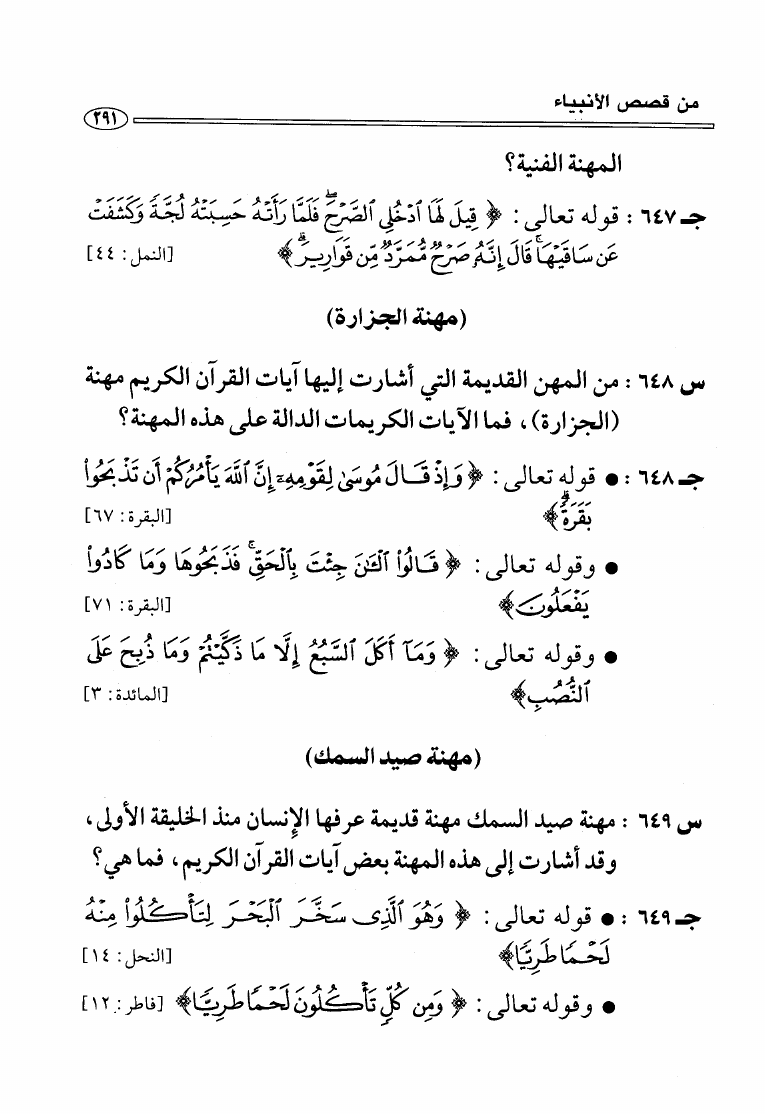 من قصص الأنبياء
٢٩١
المهنة الفنية؟
جـ ٦٤٧ : قوله تعالى : ﴿ قِيلَ لَهَا ٱدْخُلِى ٱلصَّرْحَ ۖ فَلَمَّا رَأَتْهُ حَسِبَتْهُ لُجَّةً وَكَشَفَتْ
عَن سَاقَيْهَا ۚ قَالَ إِنَّهُۥ صَرْحٌ مُّمَرَّدٌ مِّن قَوَارِيرَ ۗ ﴾ [النمل : ٤٤]
(مهنة الجزارة)
س ٦٤٨ : من المهن القديمة التي أشارت إليها آيات القرآن الكريم مهنة
(الجزارة)، فما الآيات الكريمات الدالة على هذه المهنة؟
جـ ٦٤٨ : ● قوله تعالى : ﴿ وَإِذْ قَالَ مُوسَىٰ لِقَوْمِهِۦٓ إِنَّ ٱللَّهَ يَأْمُرُكُمْ أَن تَذْبَحُوا۟
بَقَرَةً ۖ ﴾ [البقرة : ٦٧]
● وقوله تعالى : ﴿ قَالُوا۟ ٱلْـَٰٔنَ جِئْتَ بِٱلْحَقِّ ۚ فَذَبَحُوهَا وَمَا كَادُوا۟
يَفْعَلُونَ ﴾ [البقرة : ٧١]
● وقوله تعالى : ﴿ وَمَآ أَكَلَ ٱلسَّبُعُ إِلَّا مَا ذَكَّيْتُمْ وَمَا ذُبِحَ عَلَى
ٱلنُّصُبِ ﴾ [المائدة : ٣]
(مهنة صيد السمك)
س ٦٤٩ : مهنة صيد السمك مهنة قديمة عرفها الإنسان منذ الخليقة الأولى،
وقد أشارت إلى هذه المهنة بعض آيات القرآن الكريم، فما هي؟
جـ ٦٤٩ : ● قوله تعالى : ﴿ وَهُوَ ٱلَّذِى سَخَّرَ ٱلْبَحْرَ لِتَأْكُلُوا۟ مِنْهُ
لَحْمًا طَرِيًّا ﴾ [النحل : ١٤]
● وقوله تعالى : ﴿ وَمِن كُلٍّ تَأْكُلُونَ لَحْمًا طَرِيًّا ﴾ [فاطر : ١٢]